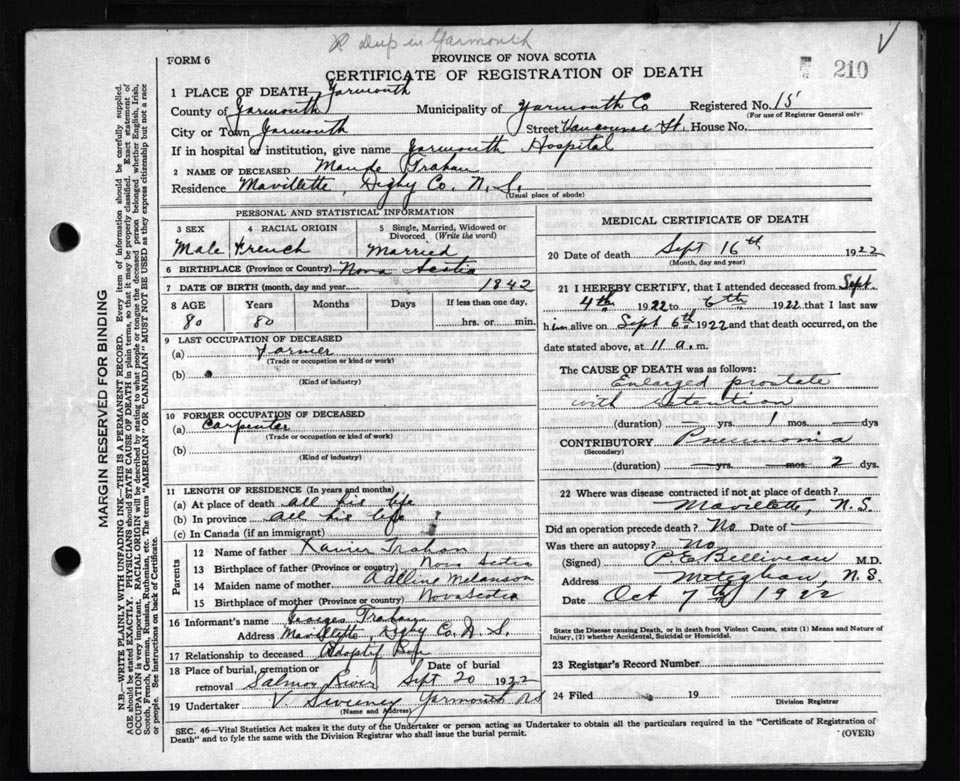 dup in Yarmouth
V
FORM 6
PROVINCE OF NOVA SCOTIA
CERTIFICATE OF REGISTRATION OF DEATH
210
1 PLACE OF DEATH Yarmouth
County of Yarmouth Municipality of Yarmouth Co Registered No. 15
(For use of Registrar General only)
City or Town Yarmouth Street Vancouver St. House No.
If in hospital or institution, give name Yarmouth Hospital
2 NAME OF DECEASED Mande Trahan
Residence Mavillette, Digby Co. N.S.
(Usual place of abode)
PERSONAL AND STATISTICAL INFORMATION
3 SEX 4 RACIAL ORIGIN 5 Single, Married, Widowed or Divorced (Write the word)
Male French Married
6 BIRTHPLACE (Province or Country) Nova Scotia
7 DATE OF BIRTH (month, day and year) 1842
8 AGE Years Months Days If less than one day,
80 80 hrs. or min.
9 LAST OCCUPATION OF DECEASED
(a) Farmer
(Trade or occupation or kind or work)
(b)
(Kind of industry)
10 FORMER OCCUPATION OF DECEASED
(a) Carpenter
(Trade or occupation or kind of work)
(b)
(Kind of industry)
11 LENGTH OF RESIDENCE (In years and months)
(a) At place of death all his life
(b) In province all his life
(c) In Canada (if an immigrant)
Parents
12 Name of father Xavier Trahan
13 Birthplace of father (Province or country) Nova Scotia
14 Maiden name of mother Adlline Melanson
15 Birthplace of mother (Province or country) Nova Scotia
16 Informant's name Trahan
Address Mavillette, Digby Co. N.S.
17 Relationship to deceased Adoptif Son
18 Place of burial, cremation or removal Salmon River Date of burial Sept 20 1922
19 Undertaker V. Sweeney Yarmouth NS
(Name and Address)
MEDICAL CERTIFICATE OF DEATH
20 Date of death Sept 16th 1922
(Month, day and year)
21 I HEREBY CERTIFY, that I attended deceased from Sept.
4th 1922 to 6th 1922 that I last saw
him alive on Sept 6th 1922 and that death occurred, on
date stated above, at 11 a.m.
The CAUSE OF DEATH was as follows:
Enlarged prostate
with retention
(duration) — yrs. 1 mos. — dys
CONTRIBUTORY Pneumonia
(Secondary)
(duration) — yrs. — mos. 2 dys.
22 Where was disease contracted if not at place of death?
Mavillette, N.S.
Did an operation precede death? No Date of —
Was there an autopsy? No
(Signed) P.E. Belliveau M.D.
Address Meteghan, N.S.
Date Oct 7th 1922
State the Disease causing Death, or in death from Violent Causes, state (1) Means and Nature of
Injury, (2) whether Accidental, Suicidal or Homicidal.
23 Registrar's Record Number
24 Filed 19
Division Registrar
SEC. 46—Vital Statistics Act makes it the duty of the Undertaker or person acting as Undertaker to obtain all the particulars required in the "Certificate of Registration of
Death" and to fyle the same with the Division Registrar who shall issue the burial permit. (OVER)
MARGIN RESERVED FOR BINDING
N.B.—WRITE PLAINLY WITH UNFADING INK—THIS IS A PERMANENT RECORD. Every item of information should be carefully supplied.
AGE should be stated EXACTLY. PHYSICIANS should STATE CAUSE OF DEATH in plain terms, so that it may be properly classified. Exact statement of
OCCUPATION is very important. RACIAL ORIGIN will be described by stating to what people or tongue the deceased person belonged whether English, Irish,
Scotch, French, German, Russian, Ruthenian, etc. The terms "AMERICAN" or "CANADIAN" MUST NOT BE USED as they express citizenship but not a race
or people. See instructions on back of Certificate.